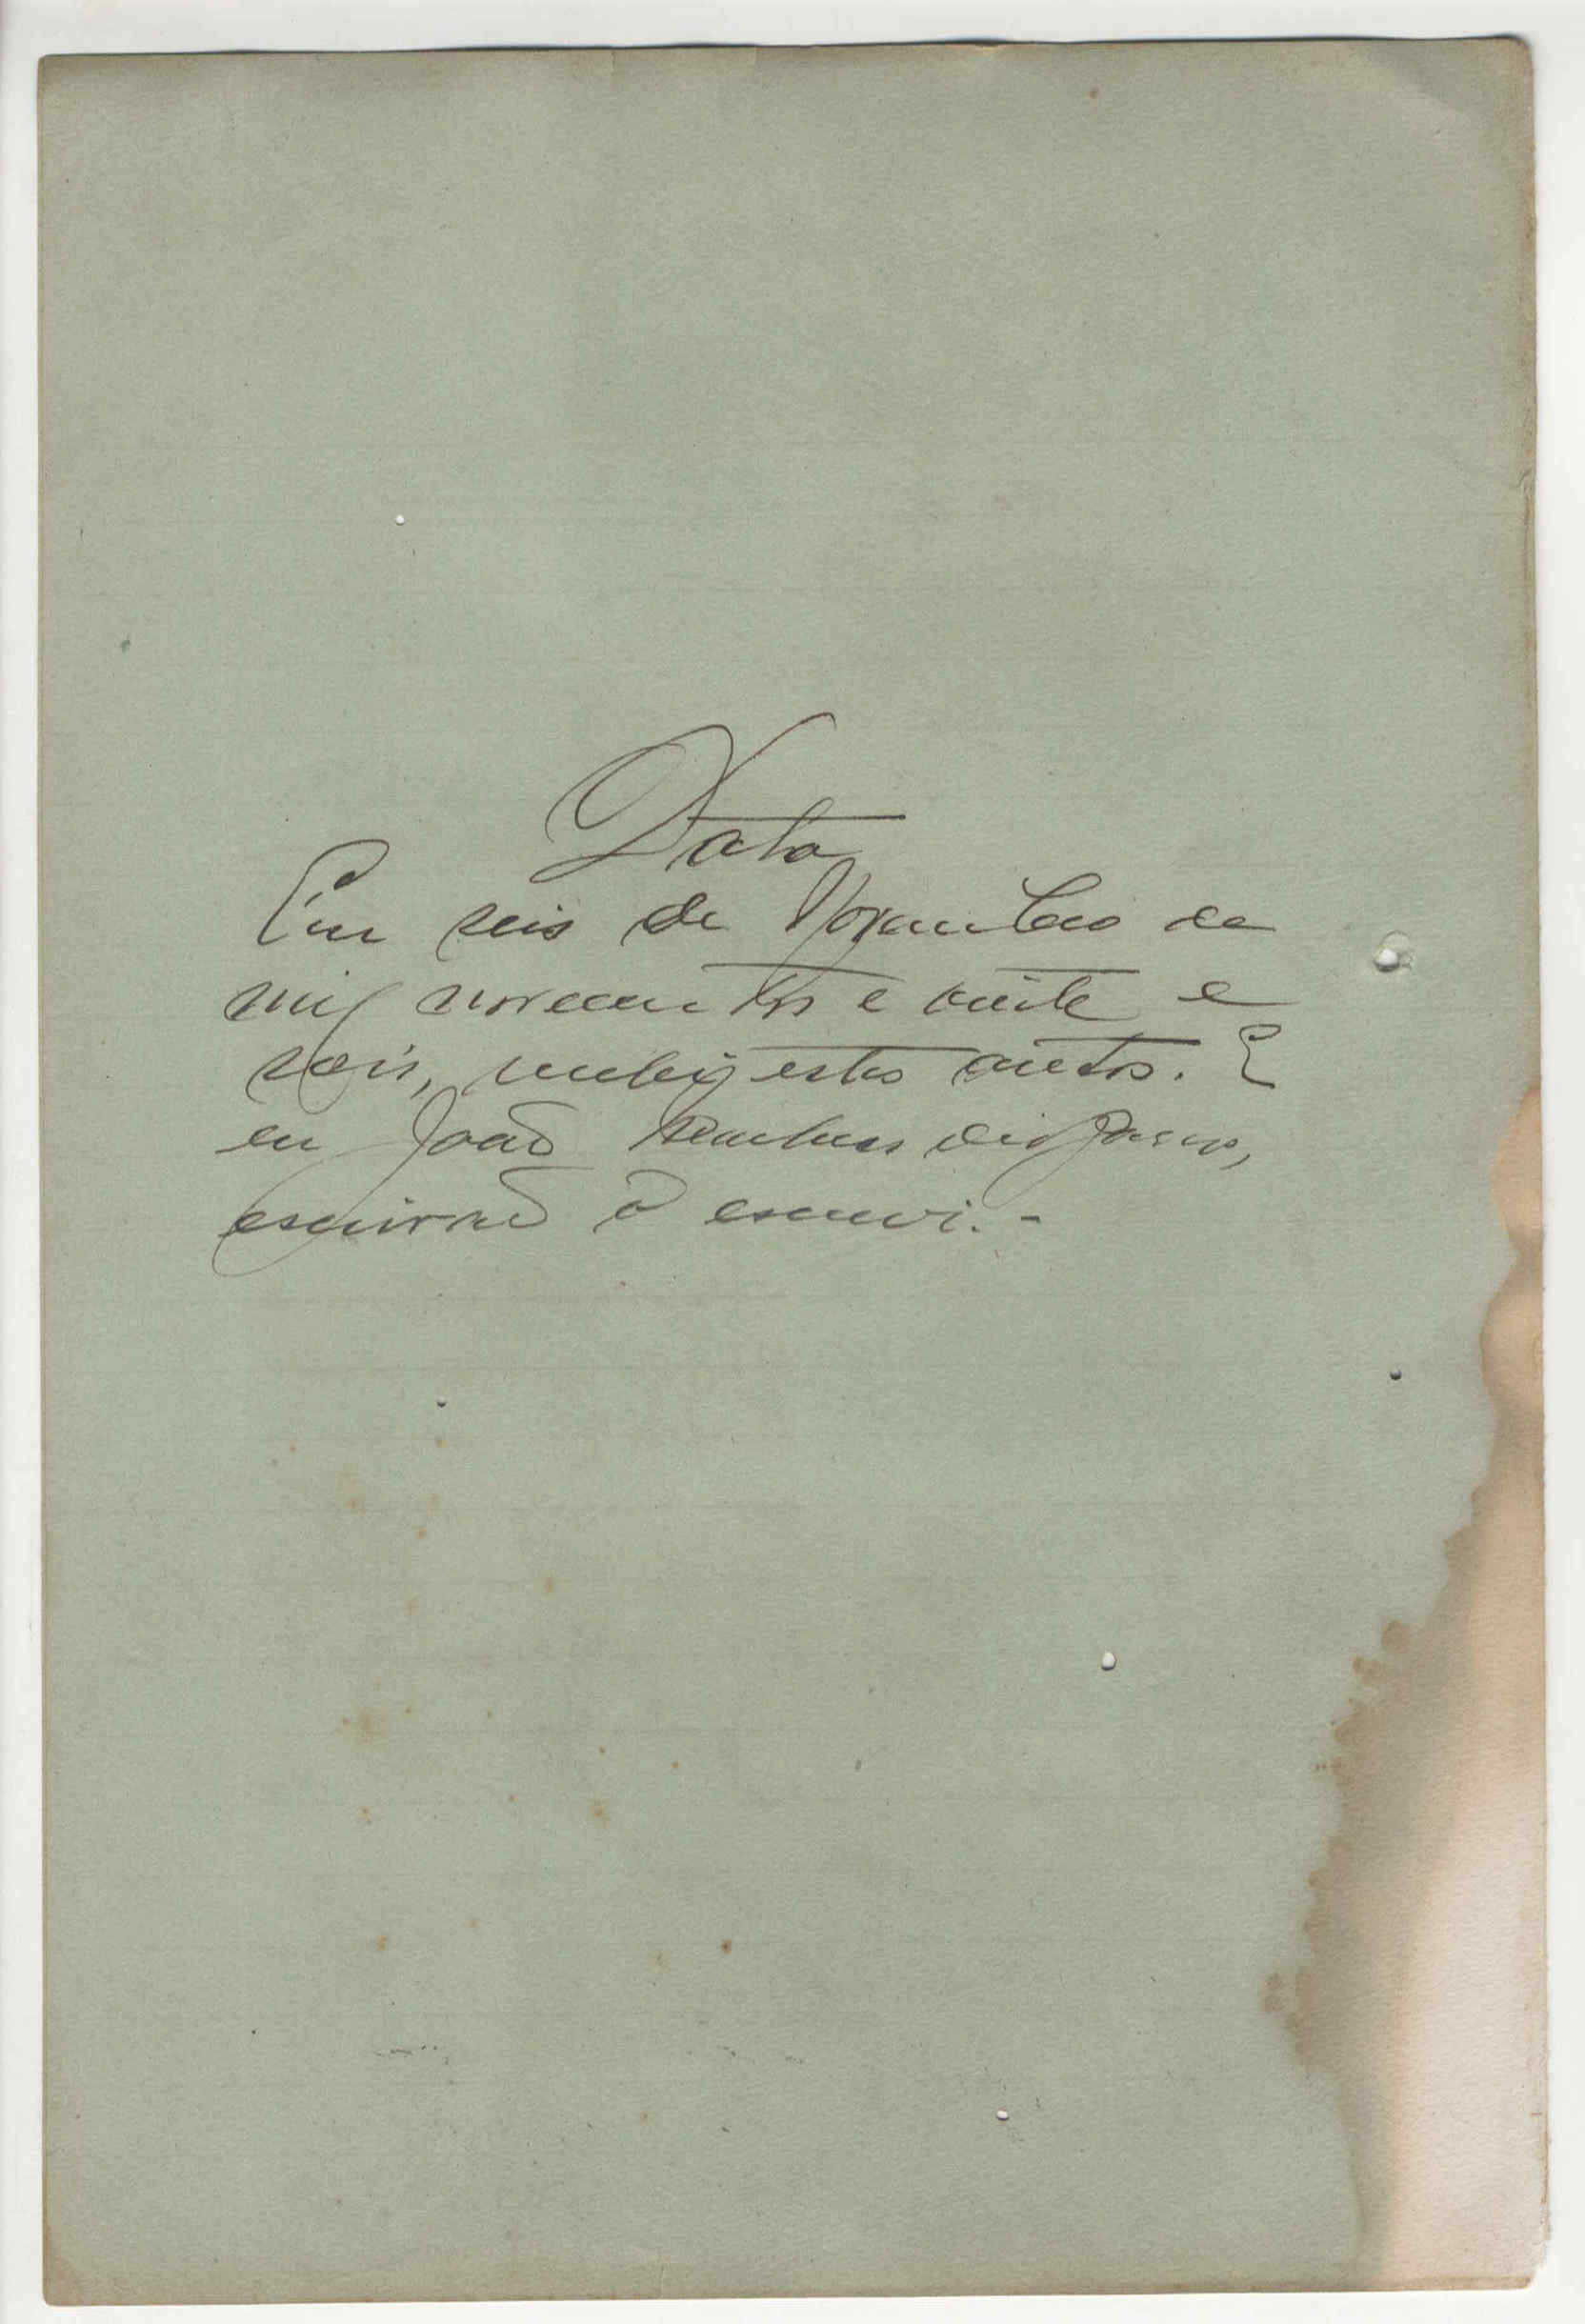 Data
Em seis de Novembro de
mil novecentos e vinte e
seis, recebi estes autos. E
eu João
escrivão o escrevi. -